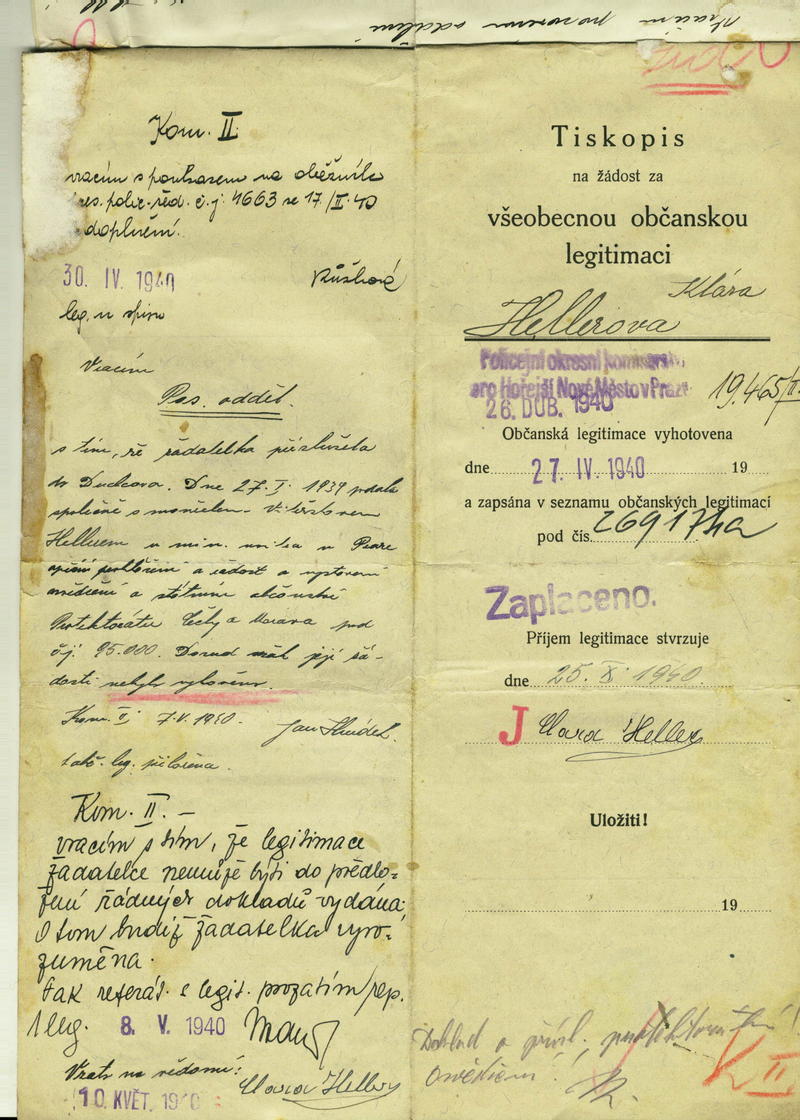 Kom. II
vracím s poukazem na oběžník
pres. polic. řed. č.j. 4663 ze 17/II. 40
doplnění.
30. IV. 1940 Růžková
leg. u spisu
Vracím
Pas. odděl.
s tím, že žadatelka příslušela
do Duchcova. Dne 27. I. 1939 podala
společně s manželem
Hellerem u min. vnitra v Praze
a žádost o vystavení
osvědčení o státním občanství
Protektorátu Čechy a Morava pod
č.j. 95.000. Dosud její žá-
dosti nebylo vyhověno.
Kom. II. 7.V. 1940. Jan
leg. přiložena.
Kom. II. —
vracím s tím, že legitimace
žadatelce nemůže býti do předlo-
žení řádných dokladů vydána.
O tom budiž žadatelka vyro-
zuměna.
tak referát s legit. prozatím rep.
1 leg. 8. V. 1940
Vzato na vědomí:
Clara Heller
10. KVĚT. 1940
Tiskopis
na žádost za
všeobecnou občanskou
legitimaci
Klára
Hellerova
Policejní okresní komisařství
pro Hořejší Nové Město v Praze
26. DUB. 1940 19.465/II
Občanská legitimace vyhotovena
dne 27. IV. 1940 19
a zapsána v seznamu občanských legitimací
pod čís. 26917
Zaplaceno.
Příjem legitimace stvrzuje
dne 25. XI. 1940.
J Clara Heller
Uložiti!
19
Doklad o přísl.
Osvědčení!
K II